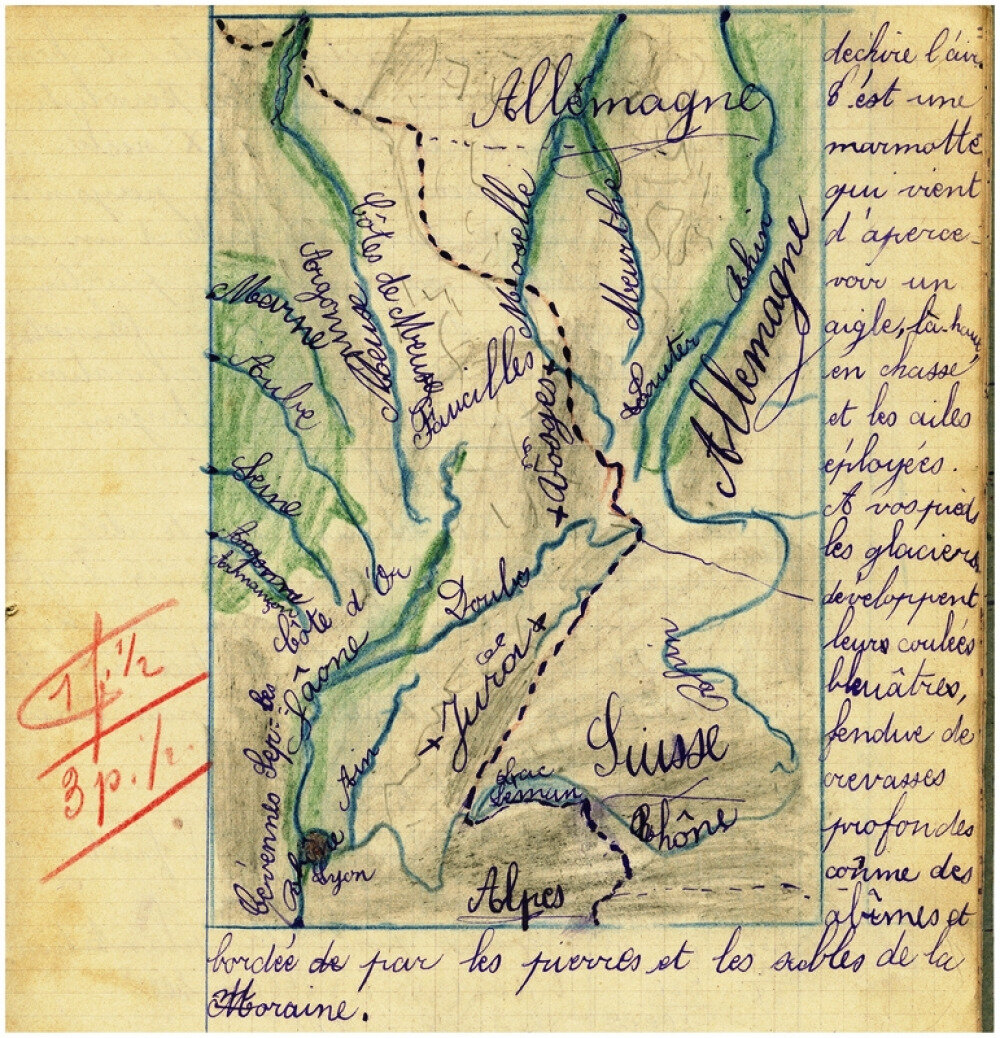 Allemagne
Côtes de Meuse
Argonne
Meuse
Moselle
Meurthe
Rhin
Allemagne
Marne
Aube
Seine
Armançon
Faucilles
Vosges
Côte d'Or
Saône
Doubs
Jura
Ain
Rhin
Suisse
Lac
Léman
Rhône
Cévennes Sep-les
Rhône
Lyon
Alpes
1 p. 1/2
3 p. 1/2
dechire l'air.
C'est une
marmotte
qui vient
d'aperce-
voir un
aigle, là-haut,
en chasse
et les ailes
éployées.
A vos pieds
les glaciers
développent
leurs coulées
bleuâtres,
fendue de
crevasses
profondes
comme des
abîmes et
bordée de par les pierres et les sables de la
Moraine.